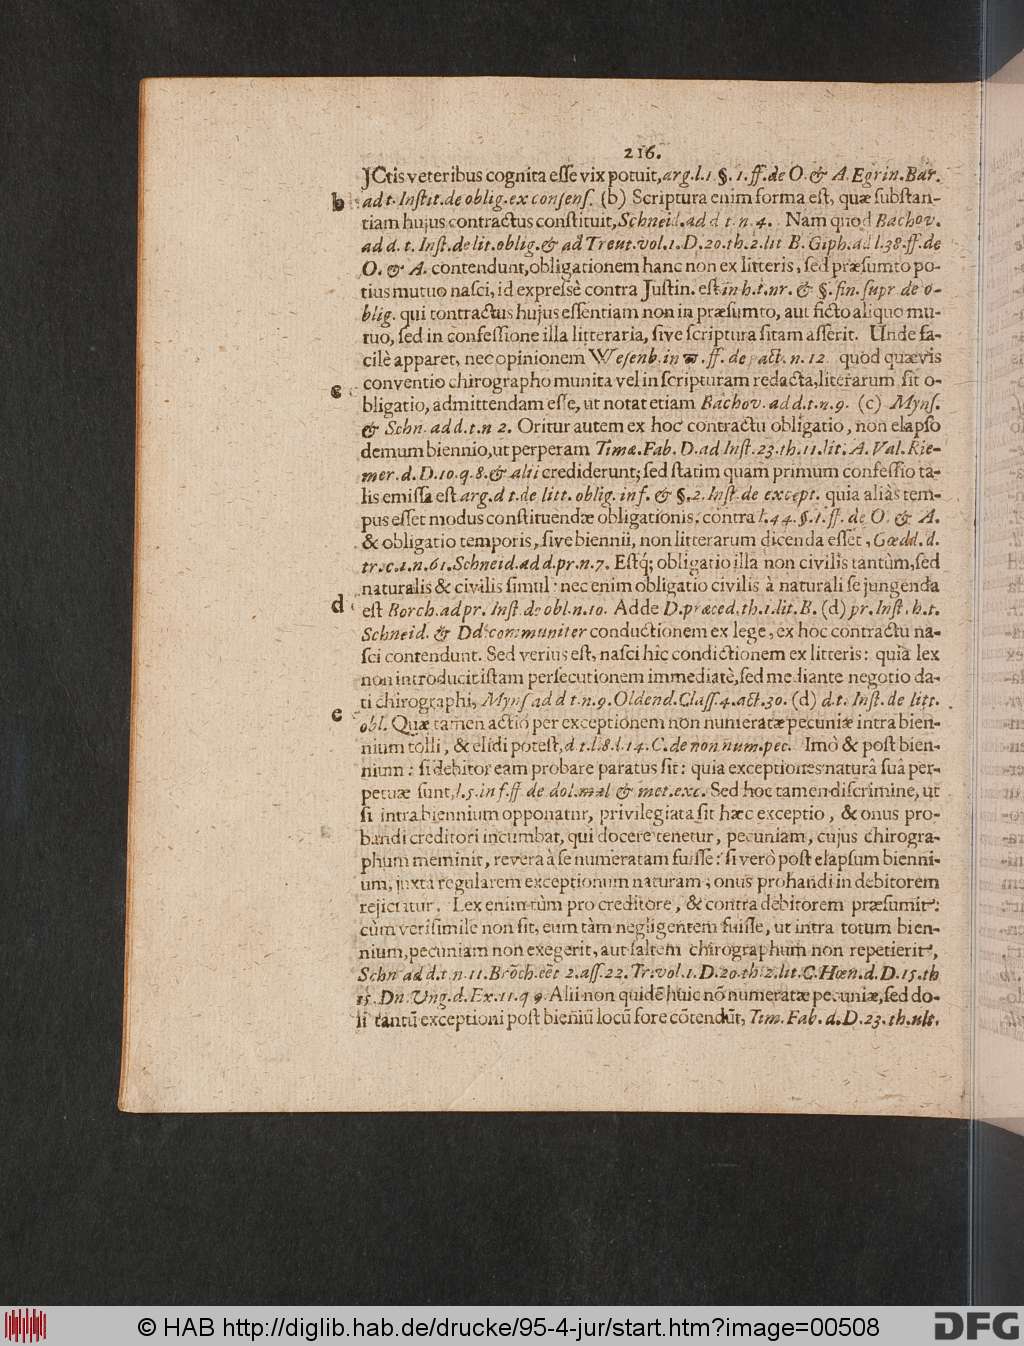 216.
JCtis veteribus cognita eſſe vix potuit, arg. l. 1 §. 1. ff. de O. & A. Egrin. Bar.
b ad t. Inſtit. de oblig. ex conſenſ. (b) Scriptura enim forma eſt, quæ ſubſtan-
tiam hujus contractus conſtituit, Schneid. ad d t. n. 4. Nam quod Bachov.
ad d. t. Inſt. de lit. oblig. & ad Treut. vol. 1. D. 20. th. 2. lit B. Giph. ad l. 38. ff. de
O. & A. contendunt, obligationem hanc non ex litteris, ſed præſumto po-
tius mutuo naſci, id expreſsè contra Juſtin. eſt in h. t. nr. & §. fin. ſupr de o-
blig. qui contractus hujus eſſentiam non in præſumto, aut ficto aliquo mu-
tuo, ſed in confeſſione illa litteraria, ſive ſcriptura ſitam aſſerit. Unde fa-
cilè apparet, nec opinionem Weſenb. in ϖ. ff. de pact. n. 12 quod quævis
c conventio chirographo munita vel in ſcripturam redacta, literarum ſit o-
bligatio, admittendam eſſe, ut notat etiam Bachov. ad d. t. n. 9. (c) Mynſ.
& Schn. ad d. t. n 2. Oritur autem ex hoc contractu obligatio, non elapſo
demum biennio, ut perperam Timæ. Fab. D. ad Inſt. 23. th. 11. lit. A. Val. Rie-
mer. d. D. 10. q. 8. & alii crediderunt; ſed ſtatim quam primum confeſſio ta-
lis emiſſa eſt arg. d t. de litt. oblig. inf. & §. 2. Inſt. de except. quia aliàs tem-
pus eſſet modus conſtituendæ obligationis. contra l. 44. §. 1. ff. de O. & A.
& obligatio temporis, ſive biennii, non litterarum dicenda eſſet, Gœdd. d.
tr. c. 1. n. 61. Schneid. ad d. pr. n. 7. Eſtq́; obligatio illa non civilis tantùm, ſed
naturalis & civilis ſimul: nec enim obligatio civilis à naturali ſejungenda
d eſt Borch. ad pr. Inſt de obl. n. 10. Adde D. præced. th. 1. lit. B. (d) pr. Inſt. h. t.
Schneid. & Dd. communiter conductionem ex lege, ex hoc contractu na-
ſci contendunt. Sed verius eſt, naſci hic condictionem ex litteris: quia lex
non introducit iſtam perſecutionem immediatè, ſed mediante negotio da-
ti chirographi, Mynſ ad d t. n. 9. Oldend. Claſſ. 4. act. 30. (d) d. t. Inſt. de litt.
e obl. Quæ tamen actio per exceptionem non numeratæ pecuniæ intra bien-
nium tolli, & elidi poteſt, d t. l. 8. l. 14. C. de non num. pec. Imò & poſt bien-
nium: ſi debitor eam probare paratus ſit: quia exceptiones naturâ ſuâ per-
petuæ ſunt, l. 5. in f. ff de dol. mal & met. exc. Sed hoc tamen diſcrimine, ut
ſi intra biennium opponatur, privilegiata ſit hæc exceptio, & onus pro-
bandi creditori incumbat, qui docere tenetur, pecuniam, cujus chirogra-
phum meminit, revera à ſe numeratam fuiſſe: ſi verò poſt elapſum bienni-
um, juxta regularem exceptionum naturam, onus probandi in debitorem
rejiciatur. Lex enim tùm pro creditore, & contra debitorem præſumit:
cùm veriſimile non ſit, eum tàm negligentem fuiſſe, ut intra totum bien-
nium, pecuniam non exegerit, aut ſaltem chirographum non repetierit,
Schn ad d. t. n. 11. Brõch. cẽt 2. aſſ. 22. Tr. vol. 1. D. 20. th. 2. lit. C. Hœn. d. D. 15. th
15. Dn. Ung. d. Ex. 11. q 9. Alii non quidẽ huic nõ numeratæ pecuniæ, ſed do-
li tantũ exceptioni poſt bieniũ locũ fore cõtendũt, Tim. Fab. d. D. 23. th. ult.
© HAB http://diglib.hab.de/drucke/95-4-jur/start.htm?image=00508
DFG